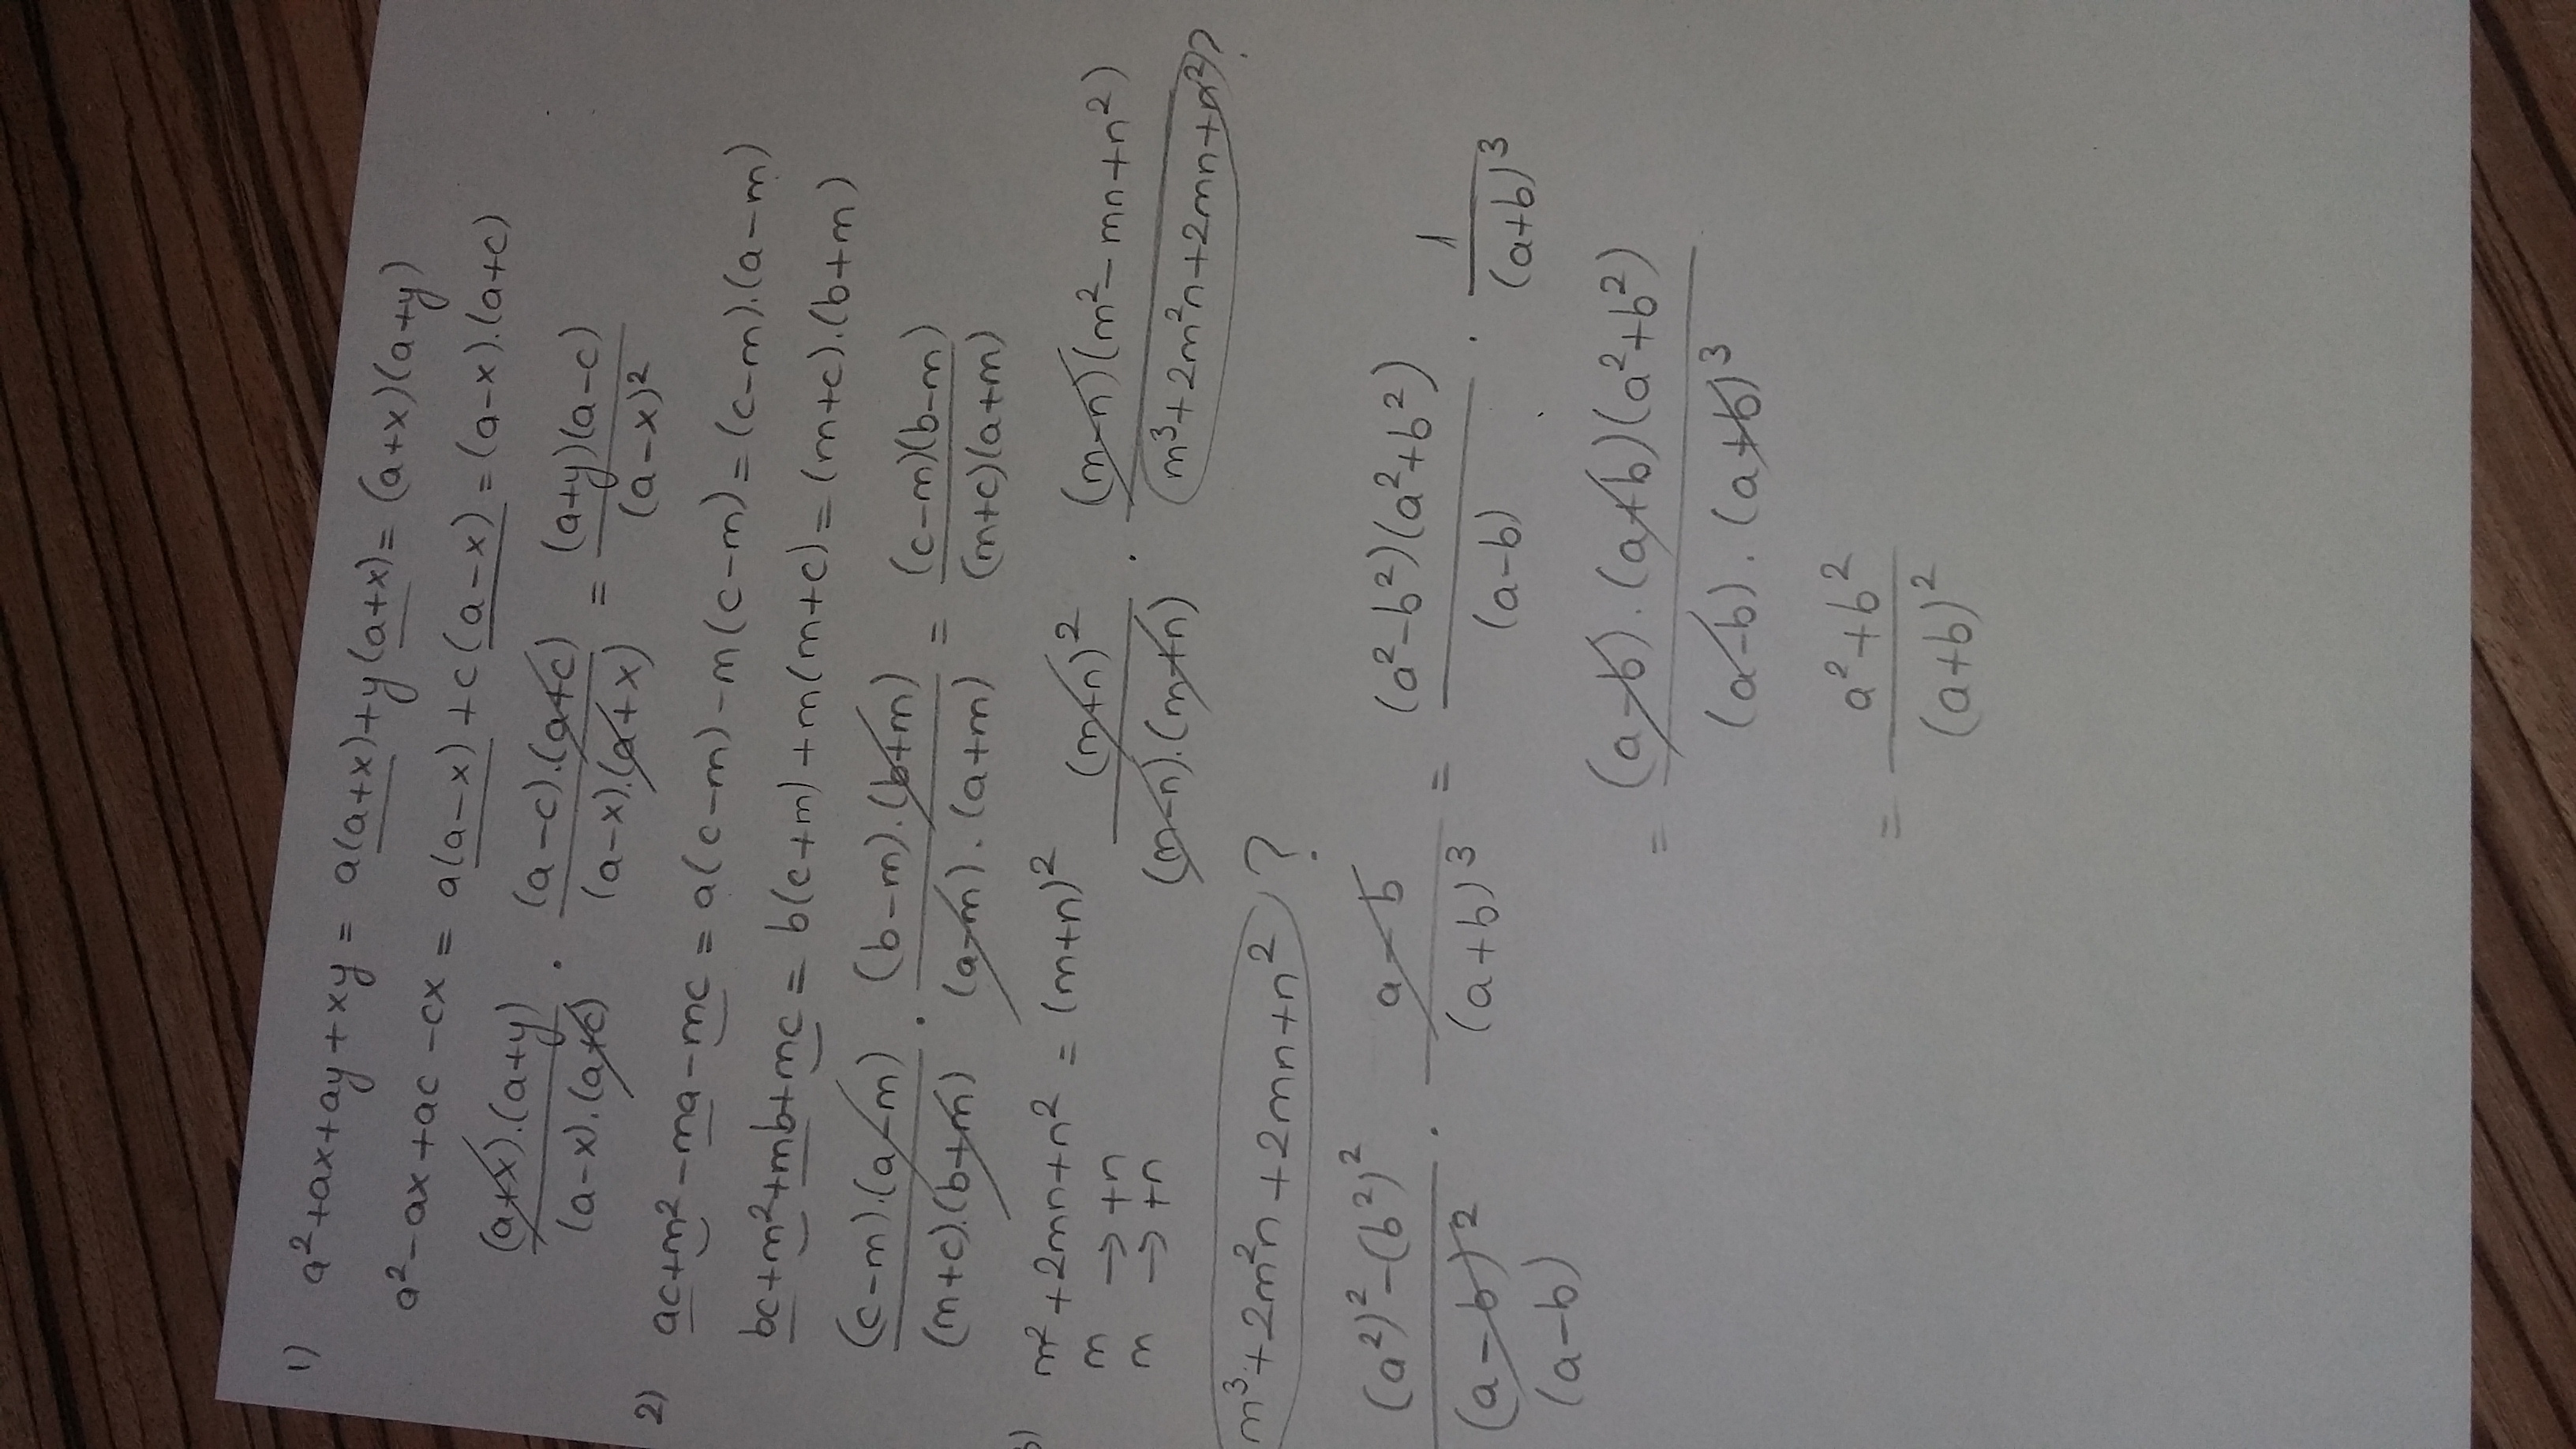 1) a²+ax+ay+xy = a(a+x)+y(a+x) = (a+x)(a+y)
a²-ax+ac-cx = a(a-x)+c(a-x) = (a-x).(a+c)
(a+x).(a+y)/(a-x).(a+c) . (a-c).(a+c)/(a-x).(a+x) = (a+y)(a-c)/(a-x)²
2) ac+m²-ma-mc = a(c-m)-m(c-m) = (c-m).(a-m)
bc+m²+mb+mc = b(c+m)+m(m+c) = (m+c).(b+m)
(c-m).(a-m)/(m+c).(b+m) . (b-m).(b+m)/(a-m).(a+m) = (c-m)(b-m)/(m+c)(a+m)
m²+2mn+n² = (m+n)²
m → +n
m → +n
(m+n)²/(m-n).(m+n) . (m-n)(m²-mn+n²)/(m³+2m²n+2mn+n²)?
m³+2m²n+2mn+n² ?
(a²)²-(b²)²/(a-b)² . a-b/(a+b)³ = (a²-b²)(a²+b²)/(a-b) . 1/(a+b)³
(a-b)
= (a-b).(a+b)(a²+b²)/(a-b).(a+b)³
= a²+b²/(a+b)²